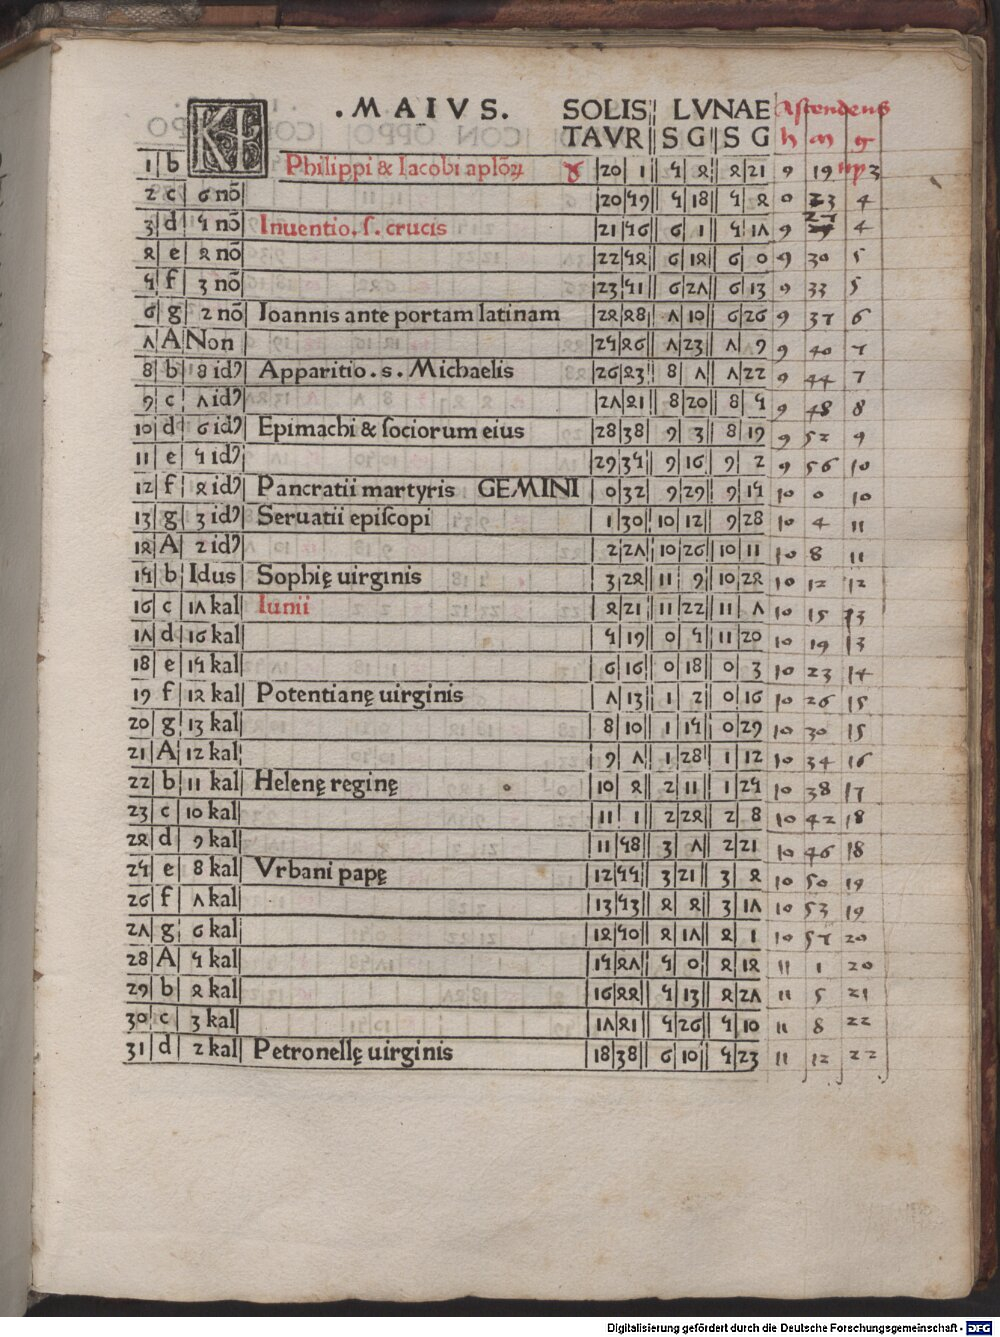 KL .MAIVS. SOLIS LVNAE Ascendens
TAVR S G S G h m g
1 b Philippi & Iacobi aplōꝝ ♉ 20 1 5 4 4 21 9 19 ♍ 3
2 c 6 nō 20 59 5 18 5 4 9 23 4
3 d 5 nō Inuentio. ſ. crucis 21 56 6 1 5 17 9 27 4
4 e 4 nō 22 54 6 14 6 0 9 30 5
5 f 3 nō 23 51 6 27 6 13 9 33 5
6 g 2 nō Ioannis ante portam latinam 24 48 7 10 6 26 9 37 6
7 A Non 25 46 7 23 7 9 9 40 7
8 b 8 idꝰ Apparitio . s . Michaelis 26 43 8 7 7 22 9 44 7
9 c 7 idꝰ 27 41 8 20 8 5 9 48 8
10 d 6 idꝰ Epimachi & ſociorum eius 28 38 9 3 8 19 9 52 9
11 e 5 idꝰ 29 35 9 16 9 2 9 56 10
12 f 4 idꝰ Pancratii martyris GEMINI 0 32 9 29 9 15 10 0 10
13 g 3 idꝰ Seruatii epiſcopi 1 30 10 12 9 28 10 4 11
14 A 2 idꝰ 2 27 10 26 10 11 10 8 11
15 b Idus Sophię uirginis 3 24 11 9 10 24 10 12 12
16 c 17 kal Iunii 4 21 11 22 11 7 10 15 13
17 d 16 kal 5 19 0 5 11 20 10 19 13
18 e 15 kal 6 16 0 18 0 3 10 23 14
19 f 14 kal Potentianę uirginis 7 13 1 2 0 16 10 26 15
20 g 13 kal 8 10 1 15 0 29 10 30 15
21 A 12 kal 9 7 1 28 1 12 10 34 16
22 b 11 kal Helenę reginę 10 4 2 11 1 25 10 38 17
23 c 10 kal 11 1 2 24 2 8 10 42 18
24 d 9 kal 11 58 3 7 2 21 10 46 18
25 e 8 kal Vrbani papę 12 55 3 21 3 4 10 50 19
26 f 7 kal 13 53 4 4 3 17 10 53 19
27 g 6 kal 14 50 4 17 4 1 10 57 20
28 A 5 kal 15 47 5 0 4 14 11 1 20
29 b 4 kal 16 44 5 13 4 27 11 5 21
30 c 3 kal 17 41 5 26 5 10 11 8 22
31 d 2 kal Petronellę uirginis 18 38 6 10 5 23 11 12 22
Digitalisierung gefördert durch die Deutsche Forschungsgemeinschaft - DFG